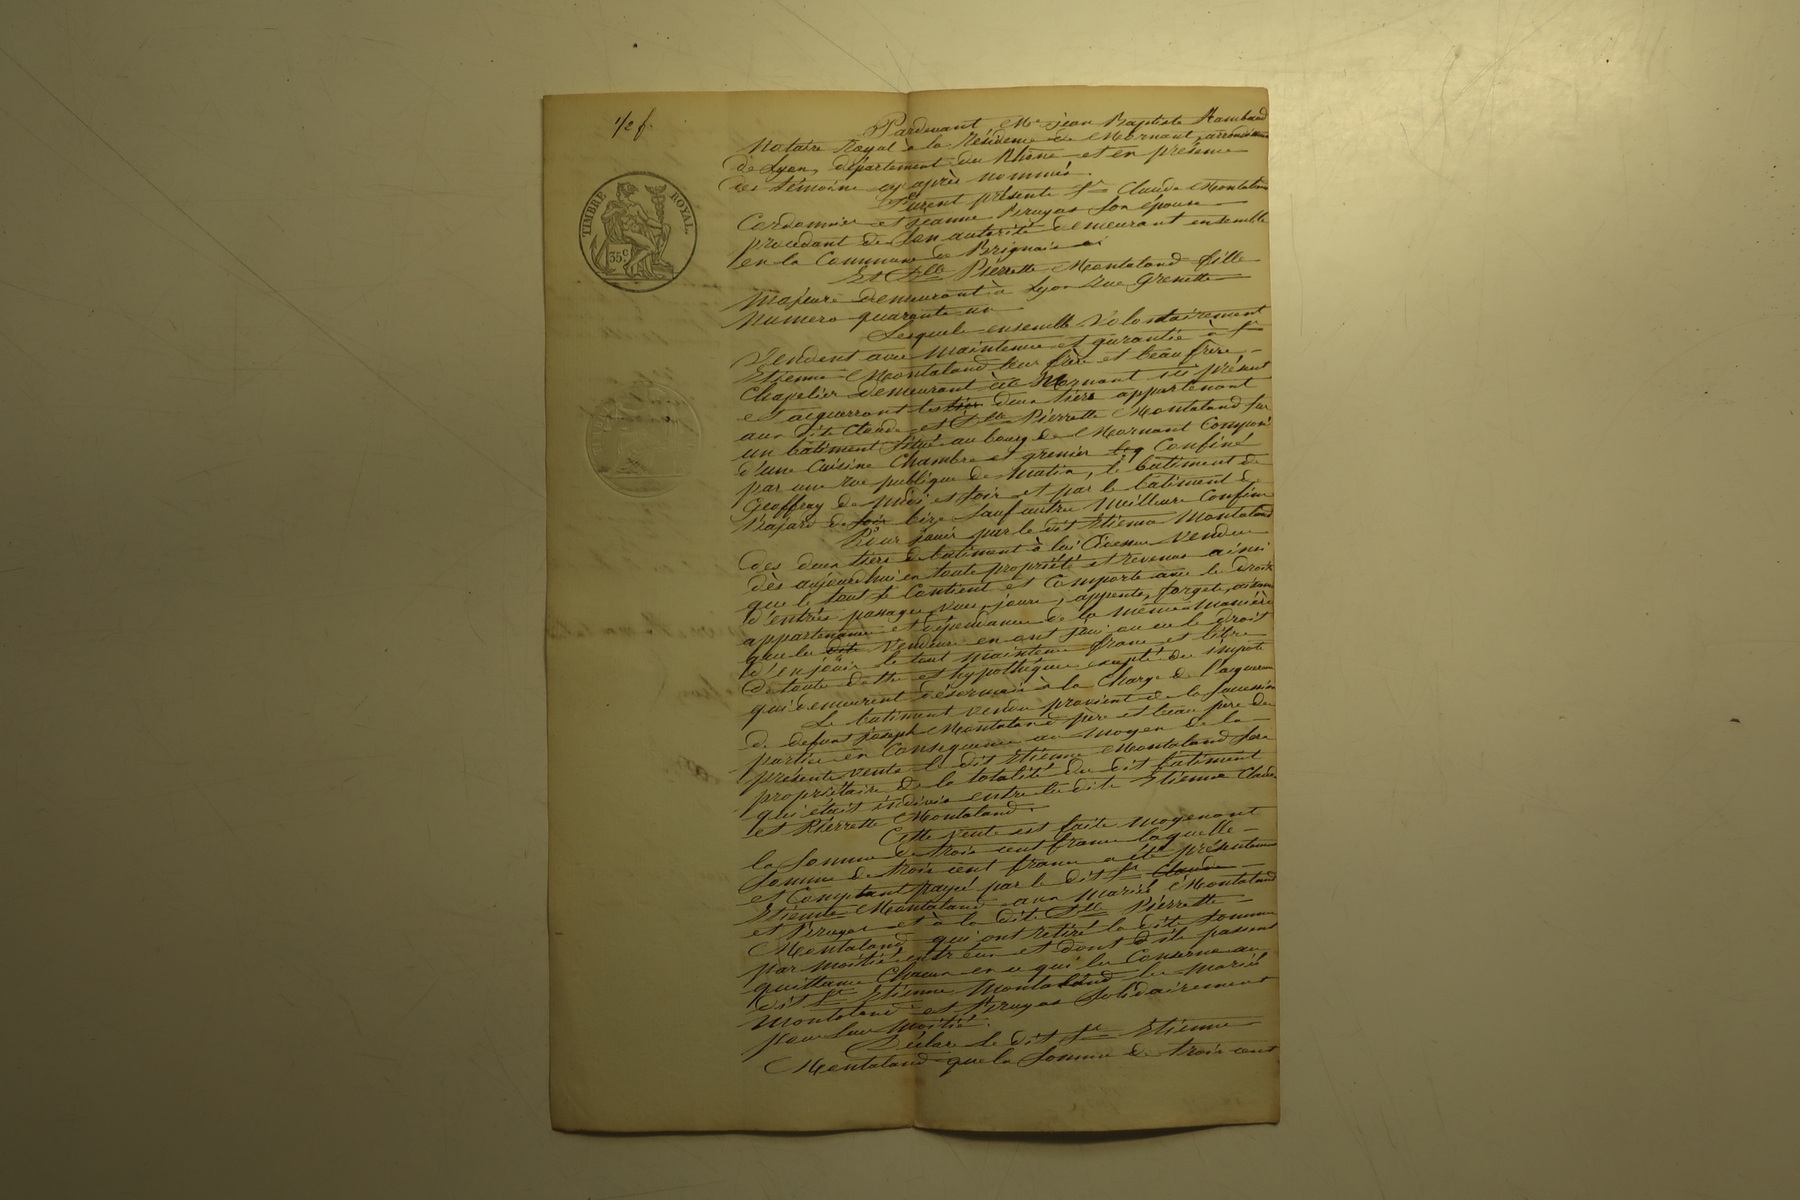 1/2 f.
TIMBRE ROYAL.
35 c
Pardevant Me jean Baptiste Rambaud
Notaire Royal à la Résidence de Mornant, arrondissement
de Lyon, département du Rhône et en présence
des témoins cy après nommés.
Furent présents sr Claude Montaland
Cordonnier et jeanne Bruyas son épouse
procedant de son autorité demeurant ensemble
en la Commune de Brignais
Et Dlle Pierrette Montaland fille
Majeure demeurant à Lyon rue Grenette
Numero quarante un
Lesquels ensemble Volontairement
Vendent avec Maintenue et garantie à sr
Etienne Montaland leur frère et beau frère
Chapelier demeurant à Mornant ici présent
et acquerront les tiers deux tiers appartenant
aux dits Claude et Dlle Pierrette Montaland sur
un batiment situé au bourg de Mornant Composé
d'une Cuisine Chambre et grenier Confiné
par une rue publique de Matin, le batiment de
Geoffray de midi et soir et par le batiment de
de soir bize sauf autres Meilleurs Confins
Pour jouir par le dit Etienne Montaland
des deux tiers de batiment à lui Vendu
dès aujourdhui en toute propriété et revenus ainsi
que le tout se Contient et Comporte avec les droits
d'entrées passages, vues, jours, forgets, aisances
appartenances et dépendances de la même Manière
que les dits Vendeurs en ont joui ou eu le droit
d'en jouir le tout maintenu franc et libre
de toute dette et hypothèque excepté des impots
qui demeurent désormais à la Charge de l'acquereur
Le batiment vendu provient de la succession
de defunt joseph Montaland père et beau père des
parties en Consequence au Moyen de la
présente vente le dit Etienne Montaland sera
propriétaire de la totalité du dit batiment
qui était indivis entre les dits Etienne Claude
et Pierrette Montaland.
Cette vente est faite moyenant
la somme de trois cent francs laquelle
somme de trois cent francs a été présentement
et Comptant payée par le dit sr Claude
Etienne Montaland aux mariés Montaland
et Bruyas et à la dite Dlle Pierrette
Montaland qui ont retiré la dite somme
par moitié entr'eux et dont ils passent
quittance Chacun en ce qui les Conserne au
dit sr Etienne Montaland les mariés
Montaland et Bruyas solidairement
pour leur moitié.
Déclare le dit sr Etienne
Montaland que la somme de trois cent